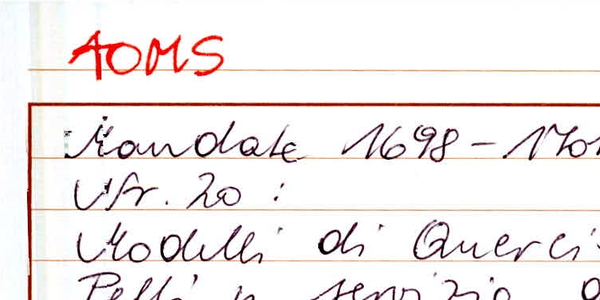 AOMS
Mandate 1698-1701
Nr. 20 :
Modelli di Querci-
Pelli n servizio